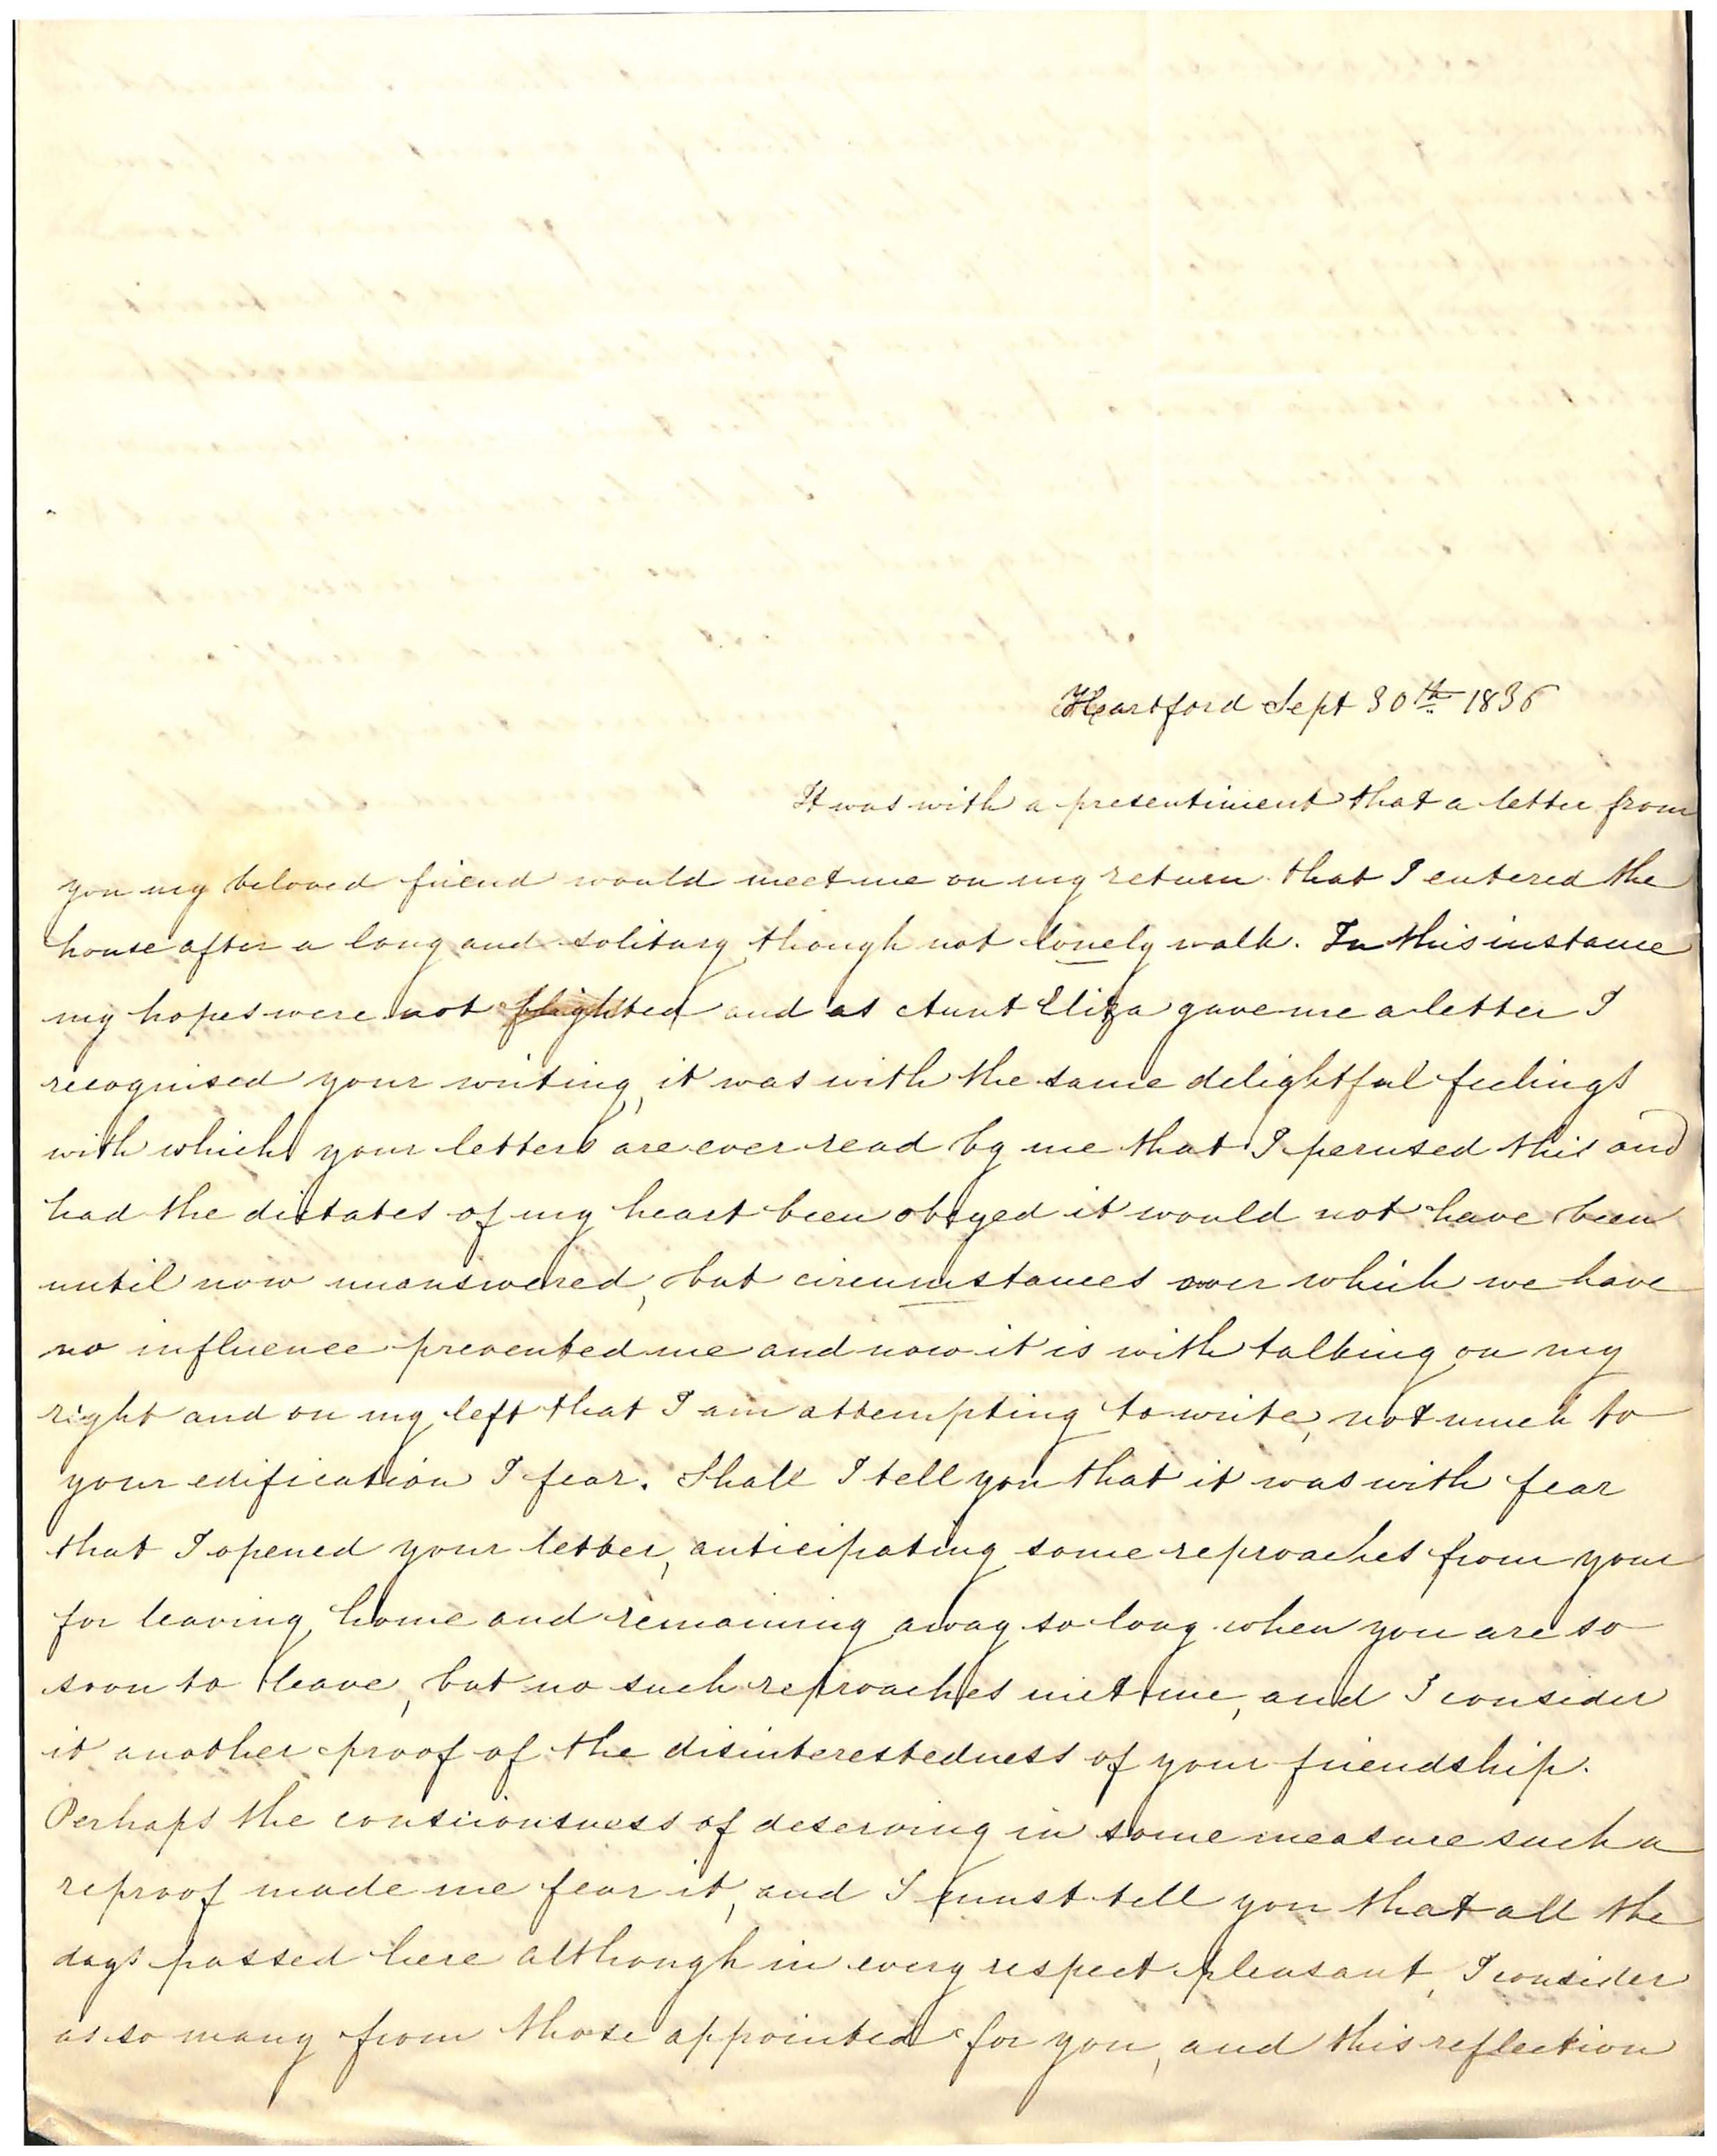 Hartford Sept 30th 1836
It was with a presentiment that a letter from
you my beloved friend would meet me on my return that I entered the
house after a long and solitary though not lonely walk. In this instance
my hopes were not blighted and as Aunt Eliza gave me a letter I
recognised your writing, it was with the same delightful feelings
with which your letters are ever read by me that I perused this and
had the dictates of my heart been obeyed it would not have been
until now unanswered, but circumstances over which we have
no influence prevented me and now it is with talking on my
right and on my left that I am attempting to write, not much to
your edification I fear. Shall I tell you that it was with fear
that I opened your letter, anticipating some reproaches from you
for leaving home and remaining away so long when you are so
soon to leave, but no such reproaches met me, and I consider
it another proof of the disinterestedness of your friendship.
Perhaps the consciousness of deserving in some measure such a
reproof made me fear it, and I must tell you that all the
days passed here although in every respect pleasant, I consider
as so many from those appointed for you, and this reflection